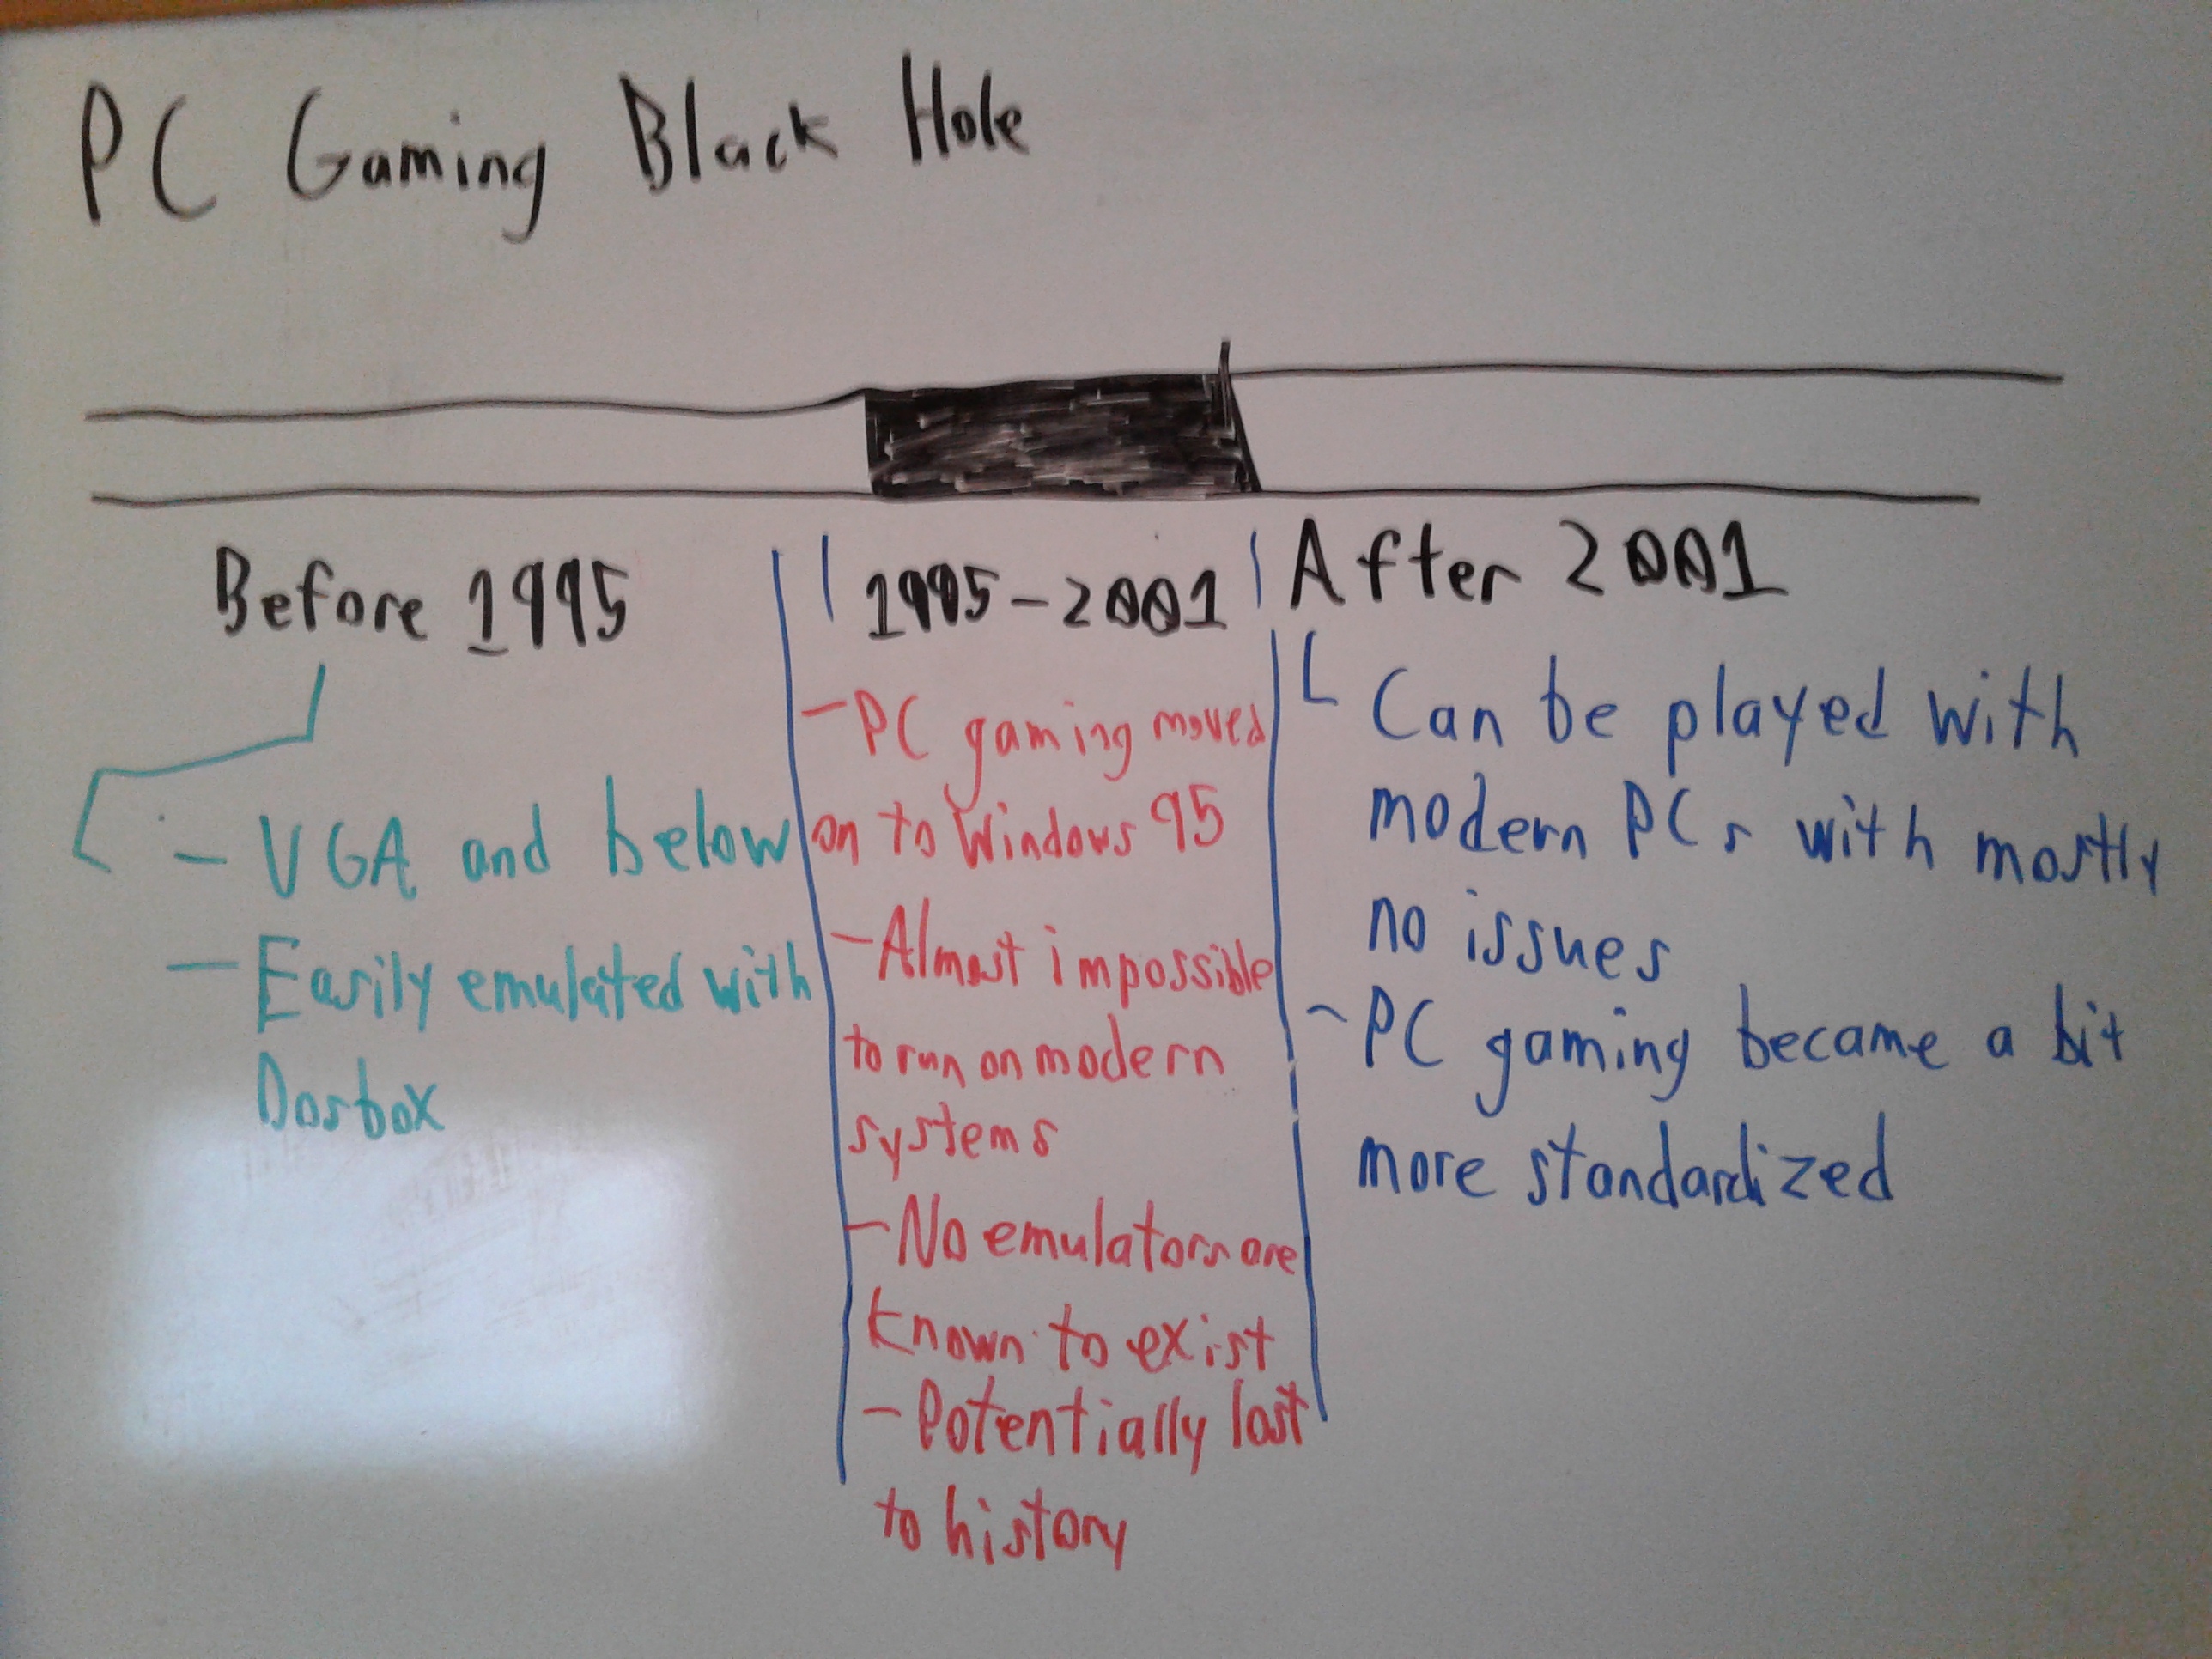 PC Gaming Black Hole
Before 1995
- VGA and below
- Easily emulated with
Dosbox
1995-2001
- PC gaming moved
on to Windows 95
- Almost impossible
to run on modern
systems
- No emulators are
known to exist
- Potentially lost
to history
After 2001
- Can be played with
modern PCs with mostly
no issues
- PC gaming became a bit
more standardized